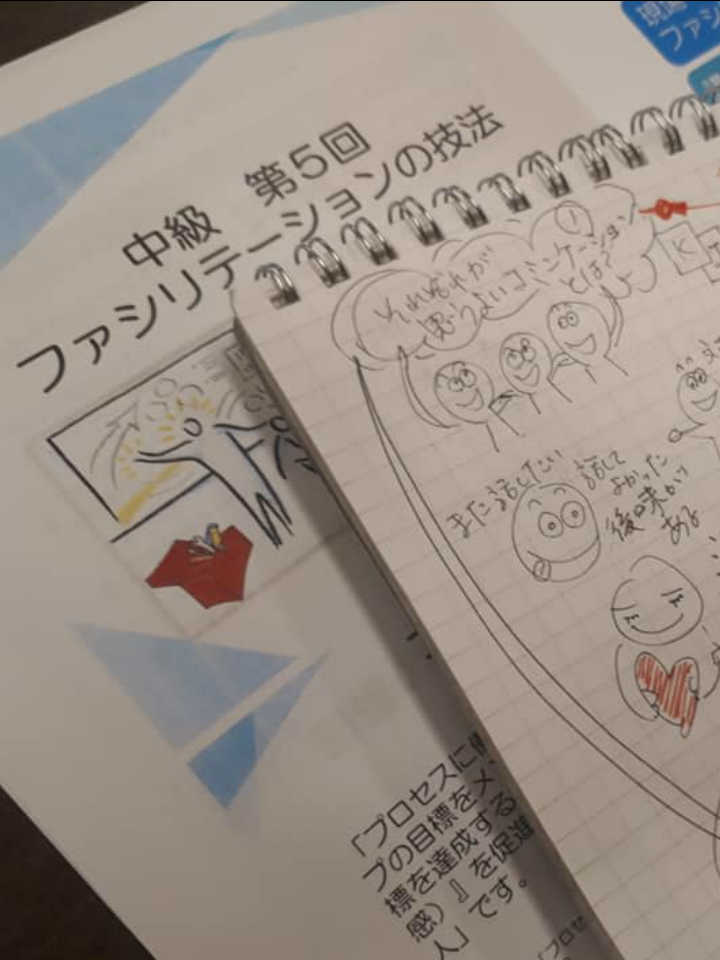 中級 第5回
ファシリテーションの技法
現
ファシ
それぞれが
思うよいコミンケーション
とは?
K
また話したい
話して
よかった
後味が
ある
「プロセスに
プの目標をメ
標を達成する
感)』を促進
人」です。
「プロセ